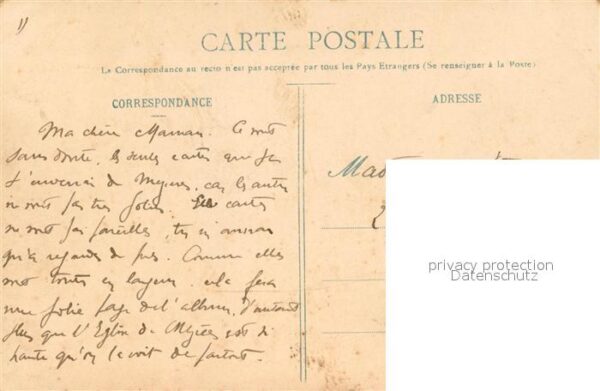 1)
CARTE POSTALE
La Correspondance au recto n'est pas acceptée par tous les Pays Etrangers (Se renseigner à la Poste)
CORRESPONDANCE
Ma chère Maman. Ce sont
sans doute, les seules cartes que je
t'enverrai de Mézières, car les autres
ne sont pas très jolies. Les cartes
ne sont pas pareilles, tu
qu'à regarder de près. Comme elles
sont toutes en largeur cela fera
une jolie page de l'album, d'autant
plus que l'Eglise de Mézières est si
haute qu'on la voit de partout.
ADRESSE
Mad
privacy protection
Datenschutz